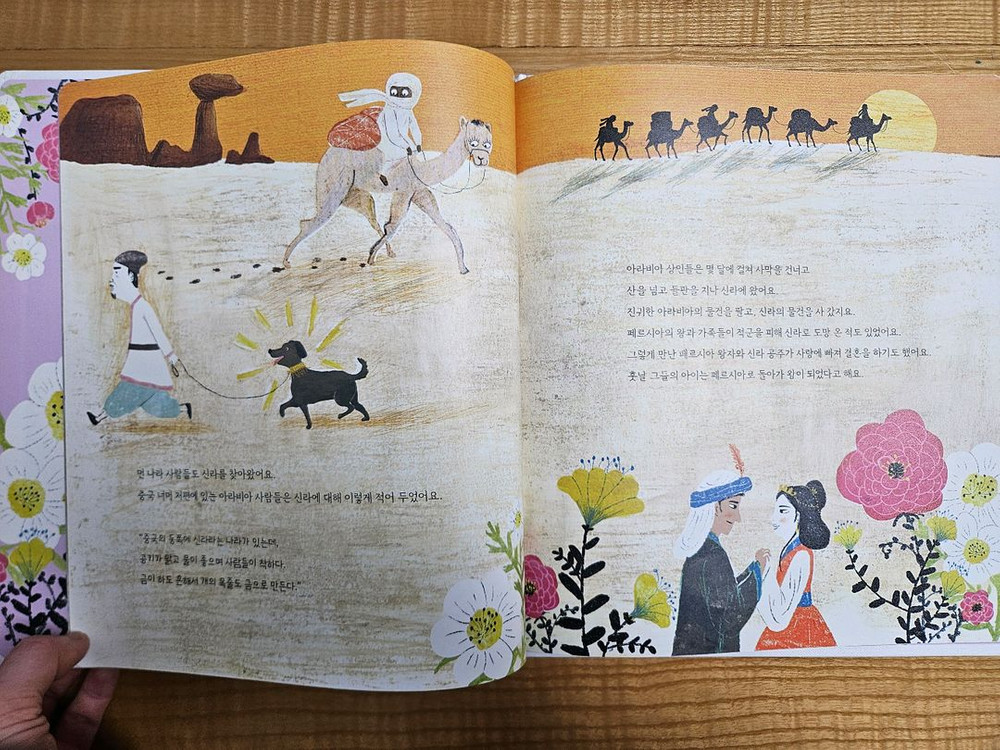 먼 나라 사람들도 신라를 찾아왔어요.
중국 너머 저편에 있는 아라비아 사람들은 신라에 대해 이렇게 적어 두었어요.
“중국의 동쪽에 신라라는 나라가 있는데,
공기가 맑고 물이 좋으며 사람들이 착하다.
금이 하도 흔해서 개의 목줄도 금으로 만든다.”
아라비아 상인들은 몇 달에 걸쳐 사막을 건너고
산을 넘고 들판을 지나 신라에 왔어요.
진귀한 아라비아의 물건을 팔고, 신라의 물건을 사 갔지요.
페르시아의 왕과 가족들이 적군을 피해 신라로 도망 온 적도 있었어요.
그렇게 만난 페르시아 왕자와 신라 공주가 사랑에 빠져 결혼을 하기도 했어요.
훗날 그들의 아이는 페르시아로 돌아가 왕이 되었다고 해요.